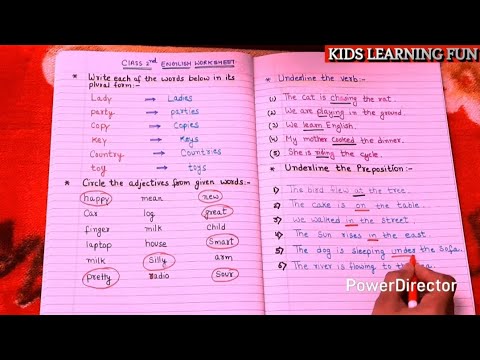 KIDS LEARNING FUN
CLASS 2nd ENGLISH WORKSHEET
* Write each of the words below in its
plural form:-
Lady → Ladies
party → parties
Copy → Copies
Key → Keys
Country → Countries
toy → toys
* Circle the adjectives from given words:-
happy mean new
Car log great
finger milk child
laptop house Smart
milk Silly arm
pretty radio Sour
* Underline the verb:-
(1) The cat is chasing the rat.
(2) We are playing in the ground.
(3) We learn English.
(4) My mother cooked the dinner.
(5) She is riding the cycle.
* Underline the Preposition:-
1) The bird flew at the tree.
2) The cake is on the table.
3) We walked in the street.
4) The Sun rises in the east
5) The dog is sleeping under the Sofa.
6) The river is flowing to the
PowerDirector